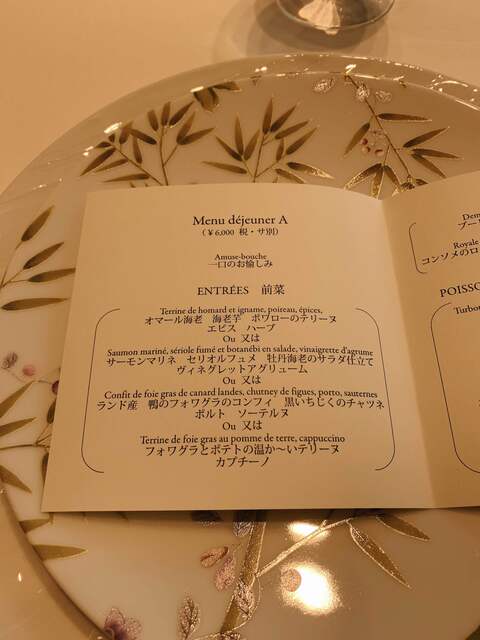 Menu déjeuner A
(¥6,000 税・サ別)
Amuse-bouche
一口のお愉しみ
ENTRÉES 前菜
Terrine de homard et igname, poireau, épices,
オマール海老 海老芋 ポワローのテリーヌ
エピス ハーブ
Ou 又は
Saumon mariné, sériole fumé et botanébi en salade, vinaigrette d'agrume
サーモンマリネ セリオルフュメ 牡丹海老のサラダ仕立て
ヴィネグレットアグリューム
Ou 又は
Confit de foie gras de canard landes, chutney de figues, porto, sauternes
ランド産 鴨のフォワグラのコンフィ 黒いちじくのチャツネ
ポルト ソーテルヌ
Ou 又は
Terrine de foie gras au pomme de terre, cappuccino
フォワグラとポテトの温か〜いテリーヌ
カプチーノ
Dem
ブー
Royale
コンソメのロ
POISSO
Turbo